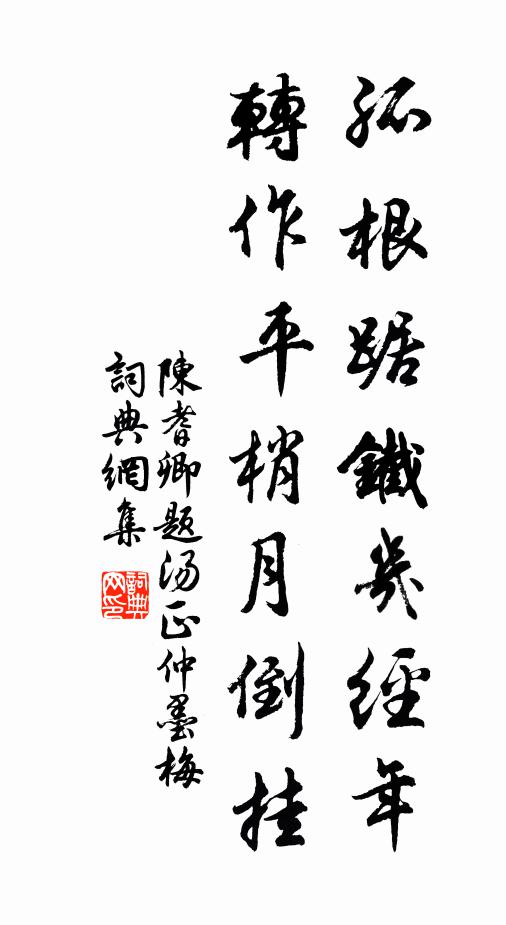 孤根踞鐵幾經年
轉作平梢月倒挂
陳耆卿題湯正仲墨梅
詞典網集
詞典網印